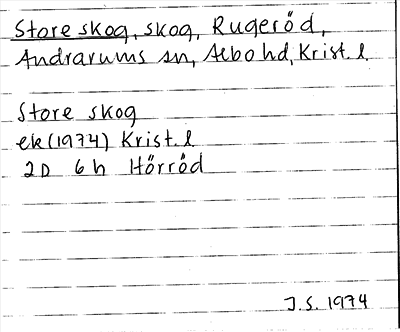 Store skog, skog, Rugeröd,
Andrarums sn, Albo hd, Krist. l.
Store skog
ek (1974) Krist. l
2D 6h Hörröd
J.S. 1974